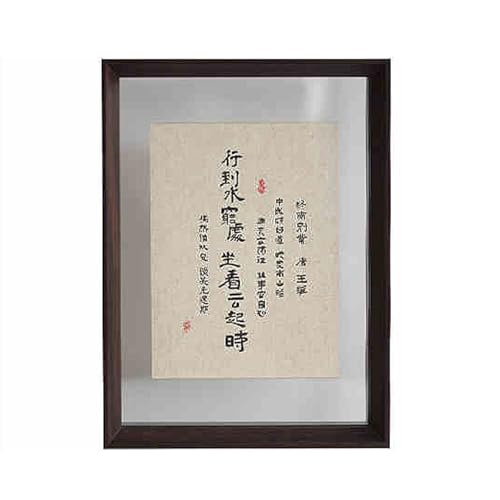 終南別業 唐 王維
中歲頗好道 晚家南山陲
興來每獨往 勝事空自知
行到水窮處 坐看云起時
偶然值林叟 談笑无還期